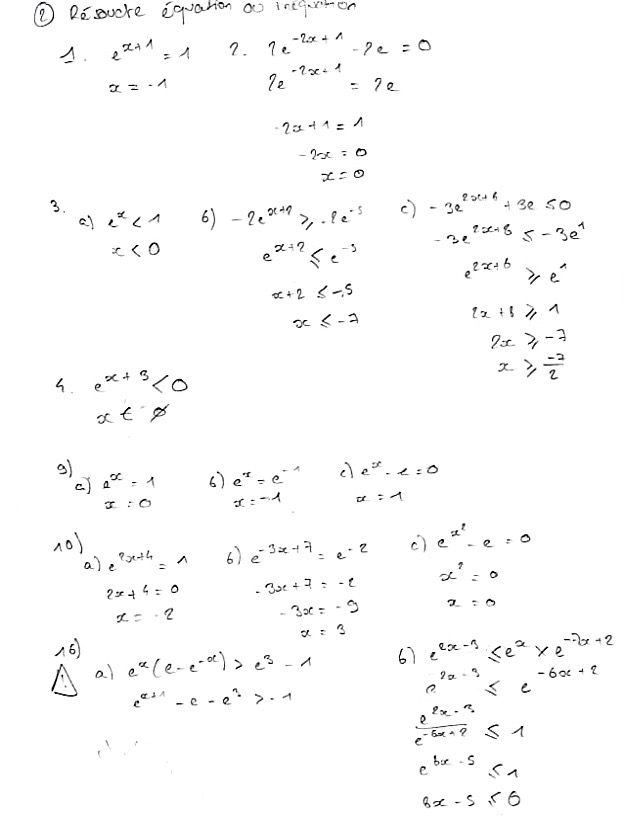 ② Résoudre équation ou inéquation
1. e^{x+1} = 1
x = -1
2. 2e^{-2x+1} - 2e = 0
2e^{-2x+1} = 2e
-2x+1 = 1
-2x = 0
x = 0
3.
a) e^x < 1
x < 0
b) -2e^{x+2} ≥ -2e^{-5}
e^{x+2} ≤ e^{-5}
x+2 ≤ -5
x ≤ -7
c) -3e^{2x+8} + 3e ≤ 0
-3e^{2x+8} ≤ -3e^1
e^{2x+8} ≥ e^1
2x+8 ≥ 1
2x ≥ -7
x ≥ -7/2
4. e^{x+3} < 0
x ∈ ∅
9)
a) e^x = 1
x = 0
b) e^x = e^{-1}
x = -1
c) e^x - e = 0
x = 1
10)
a) e^{2x+4} = 1
2x+4 = 0
x = -2
b) e^{-3x+7} = e^{-2}
-3x+7 = -2
-3x = -9
x = 3
c) e^{x²} - e = 0
x² = 0
x = 0
16)
!
a) e^x(e - e^{-x}) > e^3 - 1
e^{x+1} - e - e^3 > -1
b) e^{2x-3} ≤ e^x × e^{-7x+2}
e^{2x-3} ≤ e^{-6x+2}
e^{2x-3}/e^{-6x+2} ≤ 1
e^{8x-5} ≤ 1
8x-5 ≤ 0